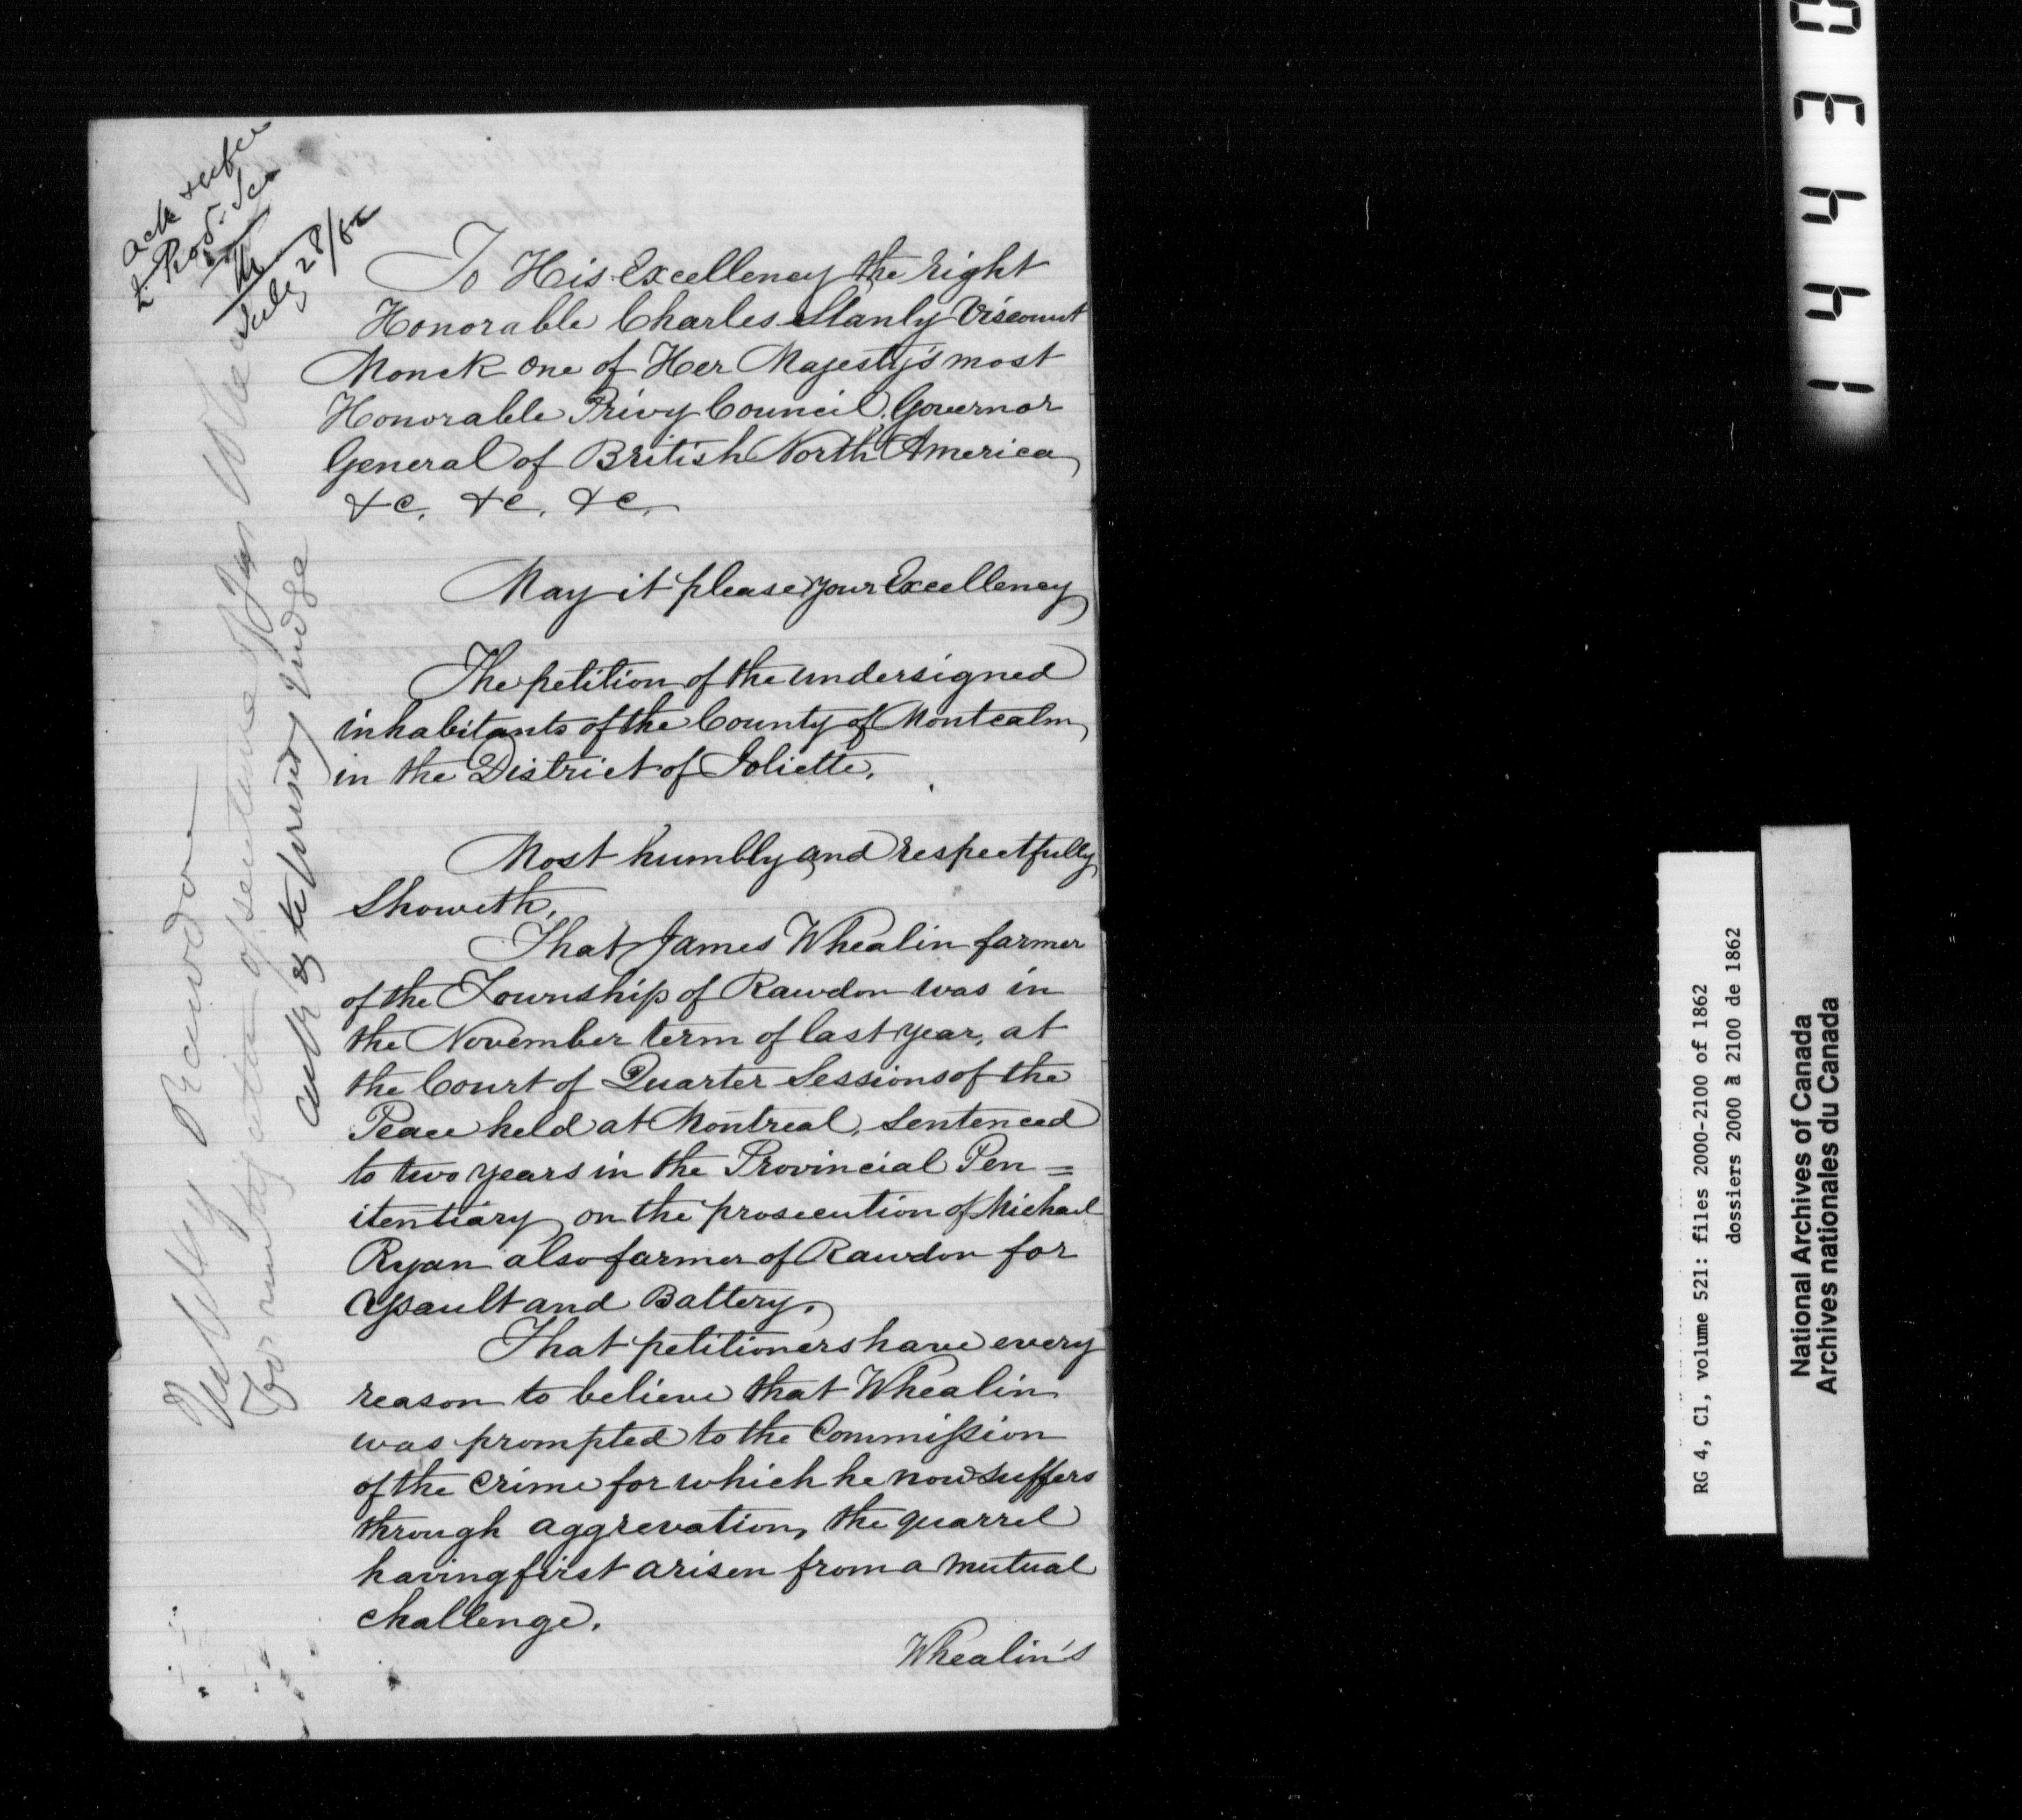 July 28/62
To His Excellency the right
Honorable Charles Stanly Viscount
Monck one of Her Majesty's most
Honorable Privy Council, Governor
General of British North America,
&c. &c. &c.
May it please your Excellency
The petition of the undersigned
inhabitants of the County of Montcalm,
in the District of Joliette,
Most humbly and respectfully
Showeth,
That James Whealin farmer
of the Township of Rawdon was in
the November term of last year, at
the Court of Quarter Sessions of the
Peace held at Montreal, sentenced
to two years in the Provincial Pen=
itentiary, on the prosecution of Michael
Ryan also farmer of Rawdon for
Assault and Battery.
That petitioners have every
reason to believe that Whealin
was prompted to the Commission
of the Crime for which he now suffers
through aggrevation, the quarrel
having first arisen from a mutual
challenge.
Whealin's
Rawdon
For of sentence Jas
Judge
RG 4, C1, volume 521: files 2000-2100 of 1862
dossiers 2000 à 2100 de 1862
National Archives of Canada
Archives nationales du Canada